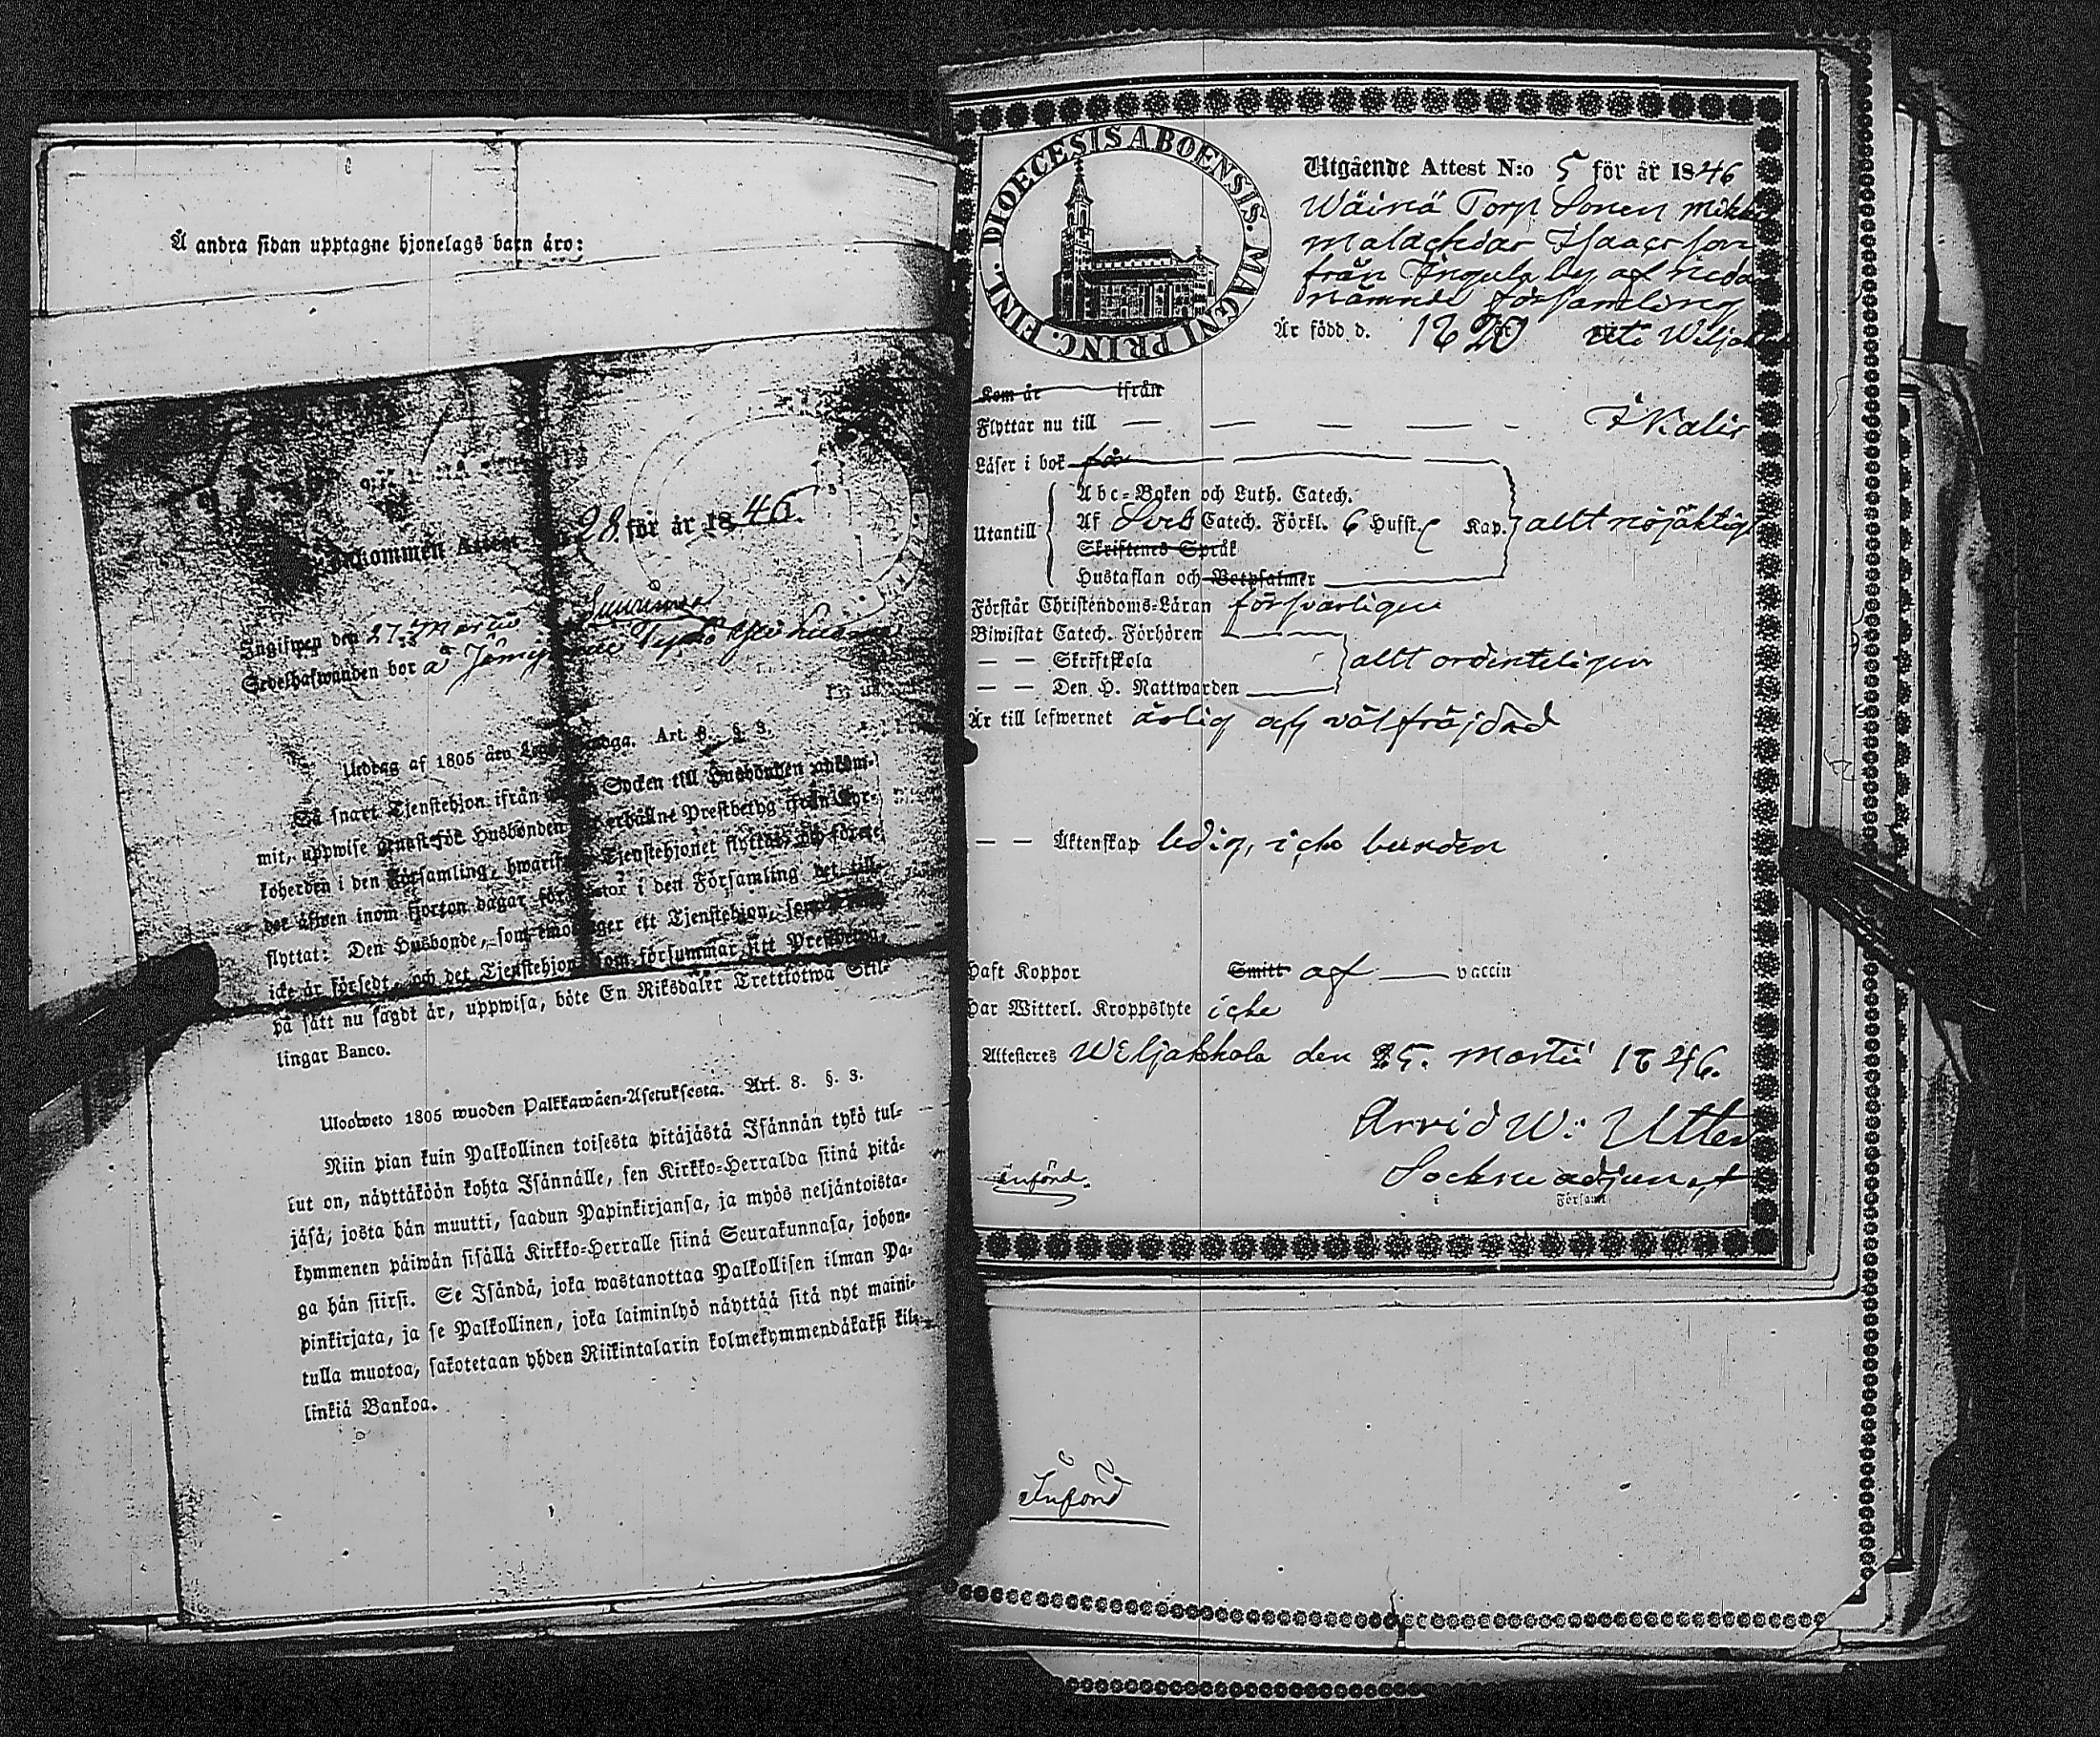 Å andra sidan upptagne hjonelags barn äro:
Inkommen Attest 28 för år 1846.
Ingifwen den 27. Martii
Sedelhafwanden bor å
Utdrag af 1805 års Art. 8. §. 3.
Så snart Tjenstehjon ifrån Socken till Husbonden ankom-
mit, uppwise genast för Husbonden erhållne Prestbetyg ifrån Kyr-
koherden i den Församling, hwarifrån Tjenstehjonet flyttat, och förete
det äfwen inom fjorton dagar för Pastor i den Församling det till-
flyttat: Den Husbonde, som emottager ett Tjenstehjon, som
icke är försedt, och det Tjenstehjon som försummar sitt Prestbetyg,
på sätt nu sagdt är, uppwisa, böte En Riksdaler Trettiotwå Skil-
lingar Banco.
Ulosweto 1805 wuoden Palkkawäen-Asetuksesta. Art. 8. §. 3.
Niin pian kuin Palkollinen toisesta pitäjästä Isännän tykö tul-
lut on, näyttäköön kohta Isännälle, sen Kirkko-Herralda siinä pitä-
jäsä, josta hän muutti, saadun Papinkirjansa, ja myös neljäntoista-
kymmenen päiwän sisällä Kirkko-Herralle siinä Seurakunnasa, johon-
ga hän siirsi. Se Isändä, joka wastanottaa Palkollisen ilman Pa-
pinkirjata, ja se Palkollinen, joka laiminlyö näyttää sitä nyt maini-
tulla muotoa, sakotetaan yhden Riikintalarin kolmekymmendäkaksi kil-
linkiä Bankoa.
DIOECESIS ABOENSIS. MAGNI PRINC. FINL.
Utgående Attest N:o 5 för år 1846
Wäinä Torp Sonen
Malachias Isaacsson
från Ingula by af neda
nämnde församling
Är född d. 1820 uti
Kom år ifrån
Flyttar nu till — — — — - Ikalis
Läser i bok för
Abc-Boken och Luth. Catech.
Utantill Af Sveb Catech. Förkl. 6 Hufst. Kap. allt nöjaktigt
Skriftenes Språk
Hustaflan och Botpsalmer
Förstår Christendoms-Läran försvarligen
Biwistat Catech. Förhören
— — Skriftskola allt ordenteligen
— — Den H. Nattwarden
Är till lefwernet ärlig och välfräjdad
— — Äktenskap ledig, icke bunden
Haft Koppor Smitt af — vaccin
Har Witterl. Kroppslyte icke
Attesteres Wiljakkala den 25. Martii 1846.
Arvid W:
Sockne adjunct
Införd.
i Församl
Införd